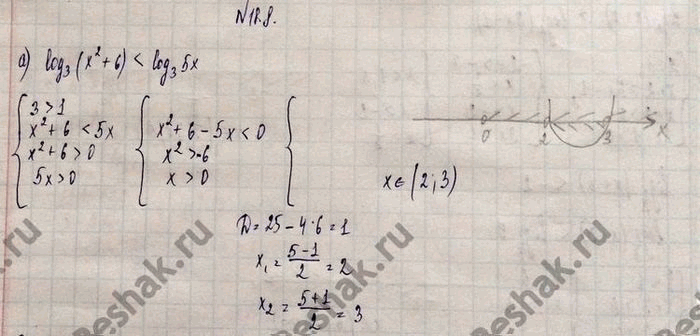 №18.8.
а) log₃(x²+6) < log₃5x
{ 3>1
x²+6 <5x
x²+6>0
5x>0
{ x²+6-5x<0
x²>-6
x>0
{
0 2 3 x
x∈(2;3)
D=25-4·6=1
x₁= (5-1)/2 =2
x₂= (5+1)/2 =3
Reshak.ru
Reshak.ru
Reshak.ru
Reshak.ru